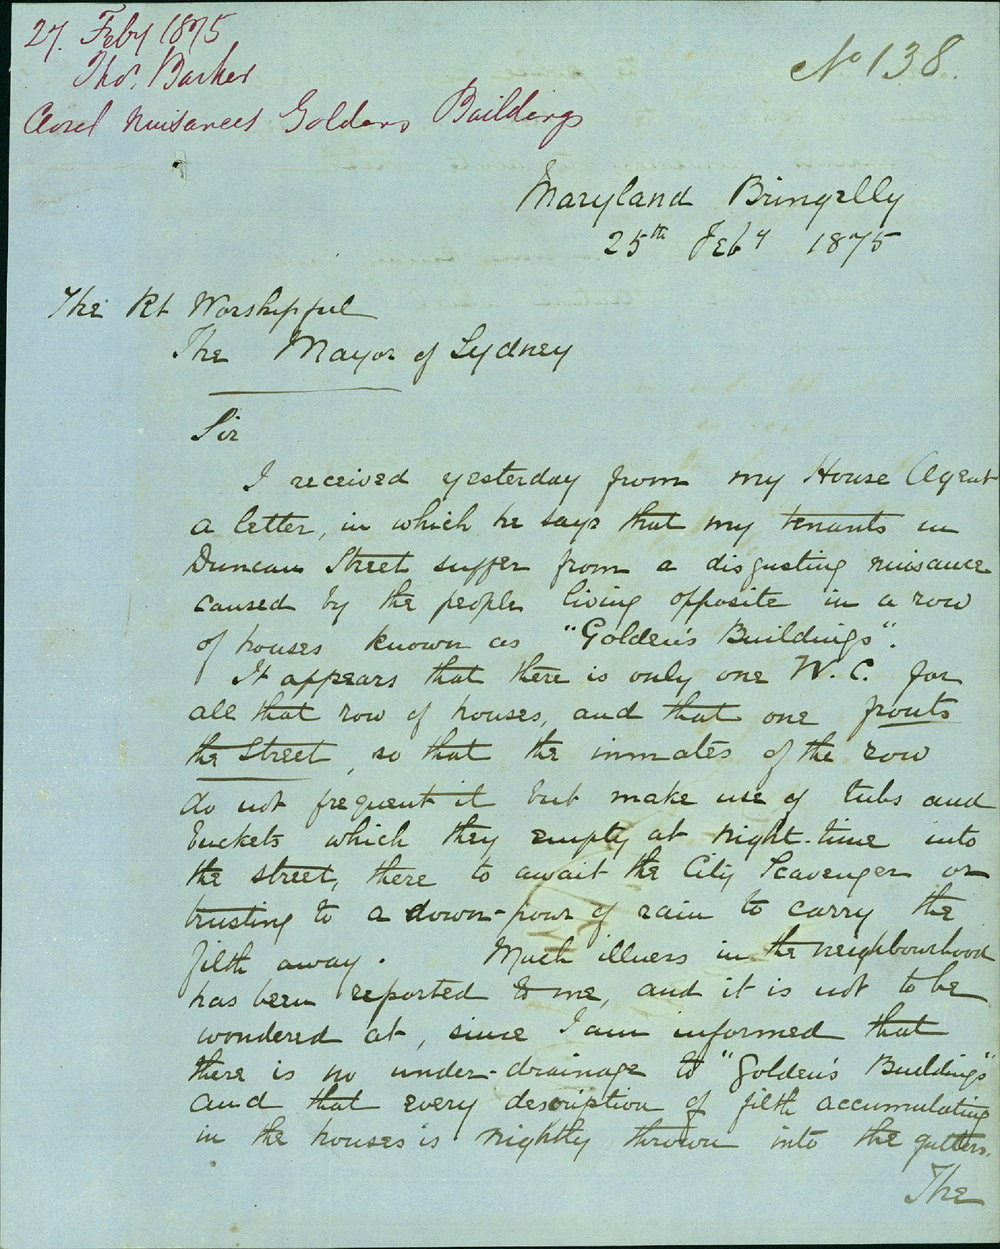 27. Feby 1875
Thos. Barker
Closet nuisances Goldens Buildings
No 138.
Maryland Bringelly
25th Feby 1875
The Rt Worshipful
The Mayor of Sydney
Sir
I received yesterday from my House Agent
a letter, in which he says that my tenants in
Duncan Street suffer from a disgusting nuisance
caused by the people living opposite in a row
of houses known as "Golden's Buildings".
It appears that there is only one W.C. for
all that row of houses, and that one fronts
the Street, so that the inmates of the row
do not frequent it but make use of tubs and
buckets which they empty at night-time into
the street, there to await the City Scavenger or
trusting to a down-pour of rain to carry the
filth away. Much illness in the neighbourhood
has been reported to me, and it is not to be
wondered at, since I am informed that
there is no under-drainage to "Golden's Buildings"
and that every description of filth accumulating
in the houses is nightly thrown into the gutters.
The